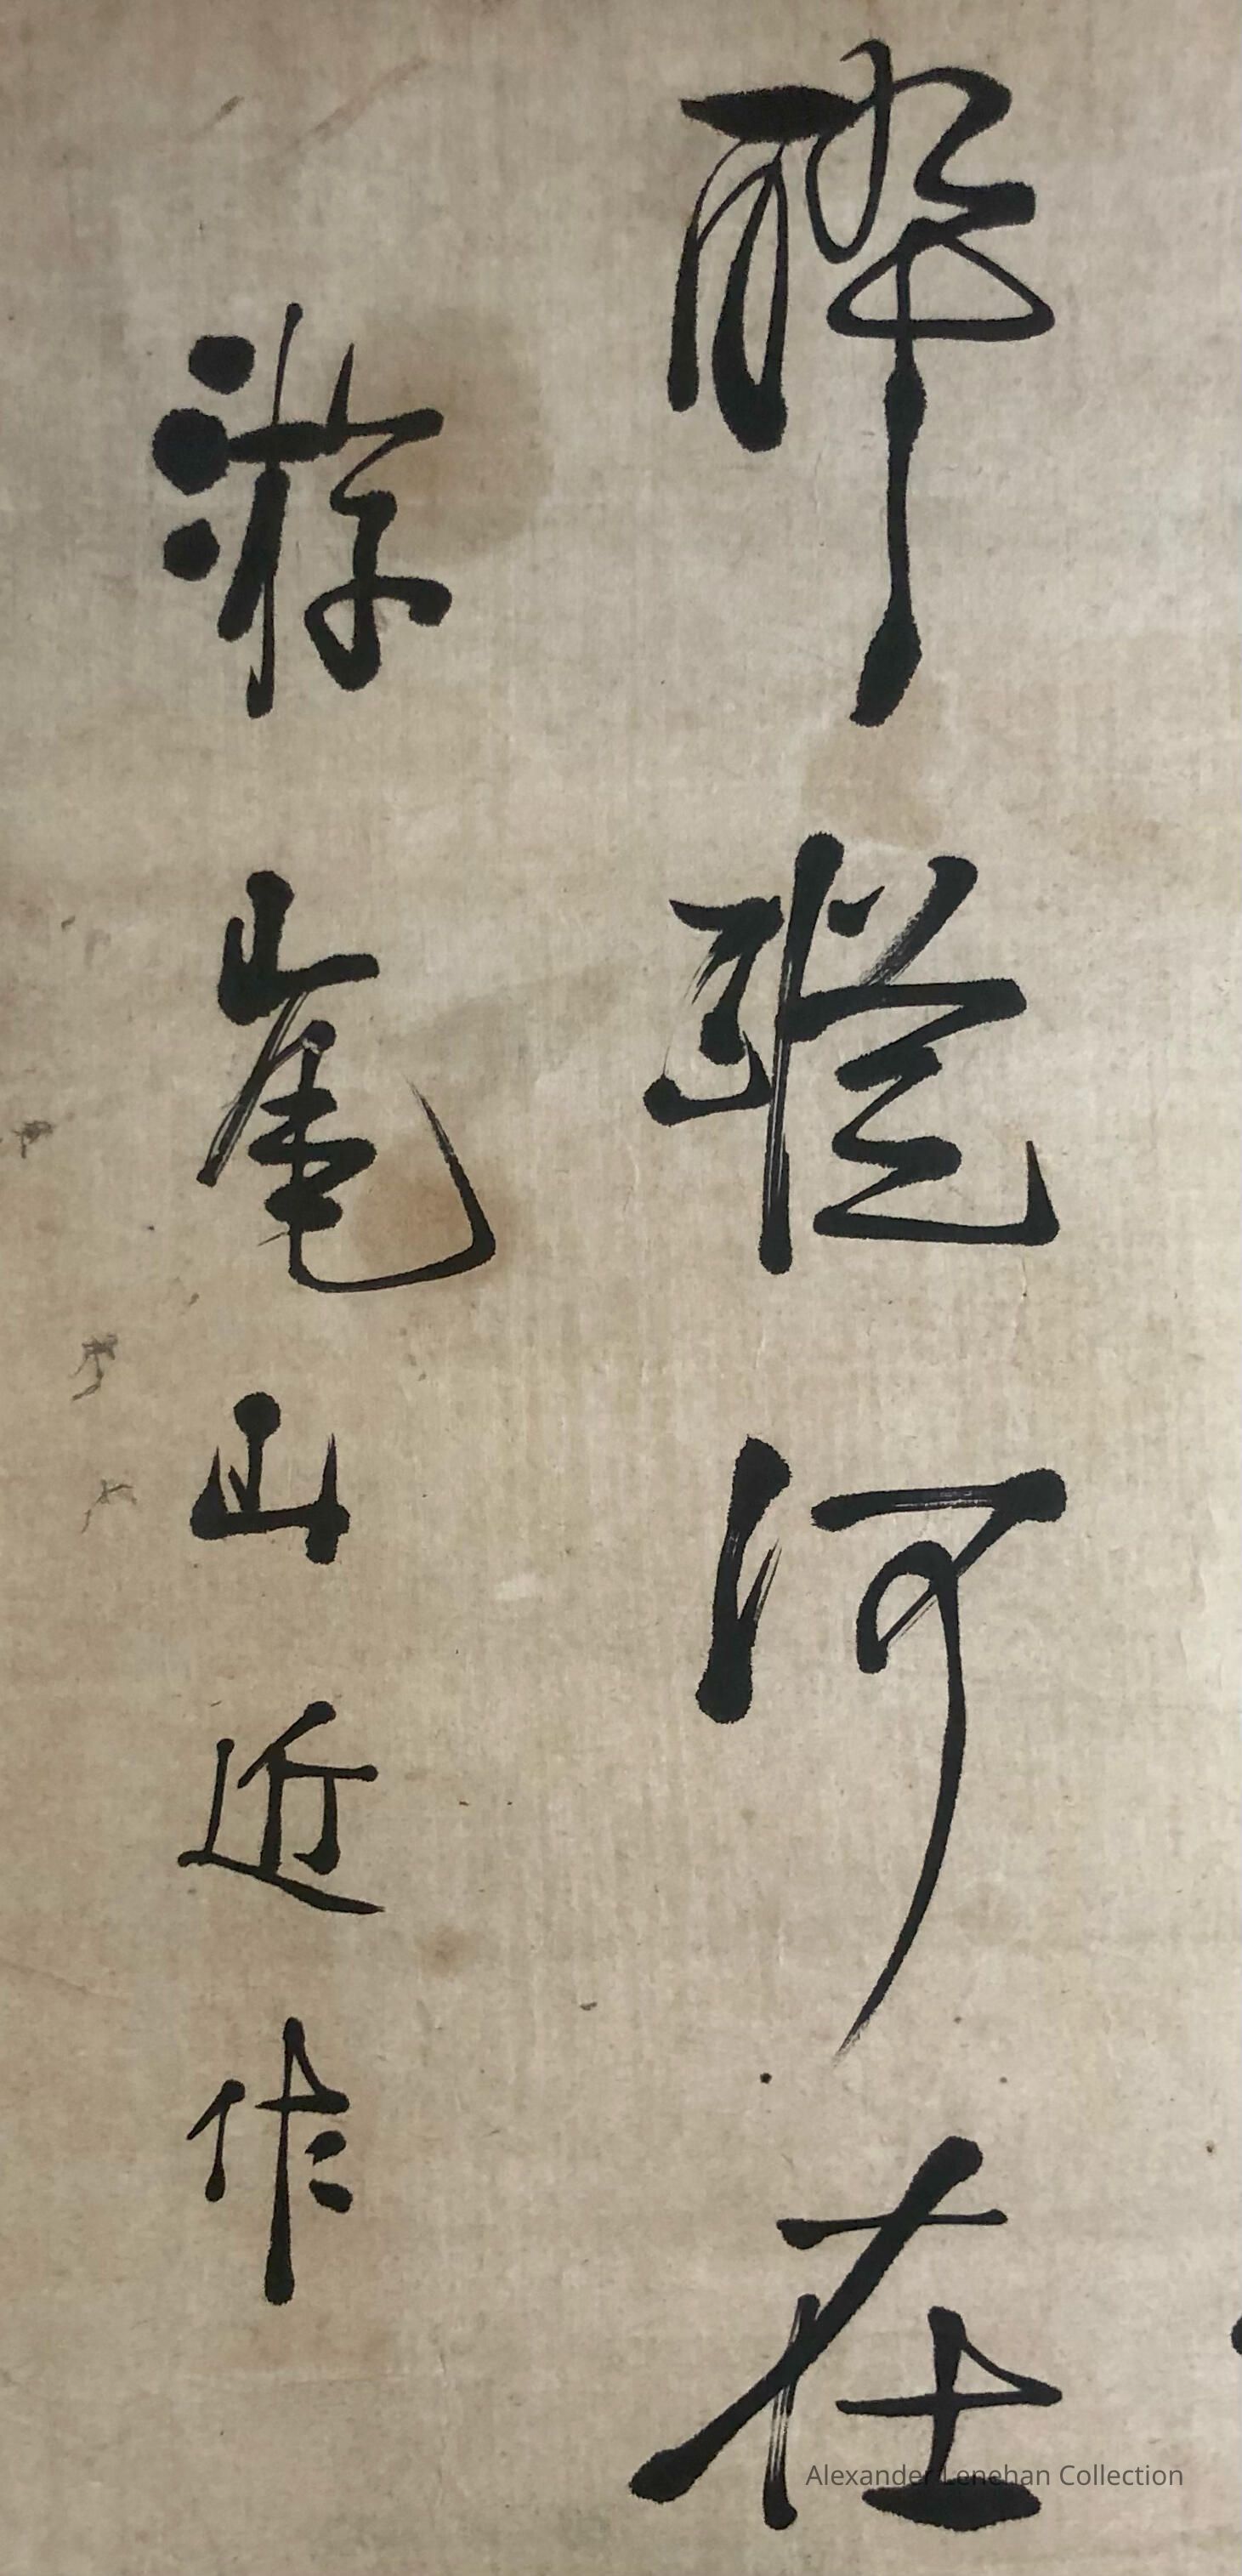 醉蹤何在
游山近作
Alexander Lenehan Collection